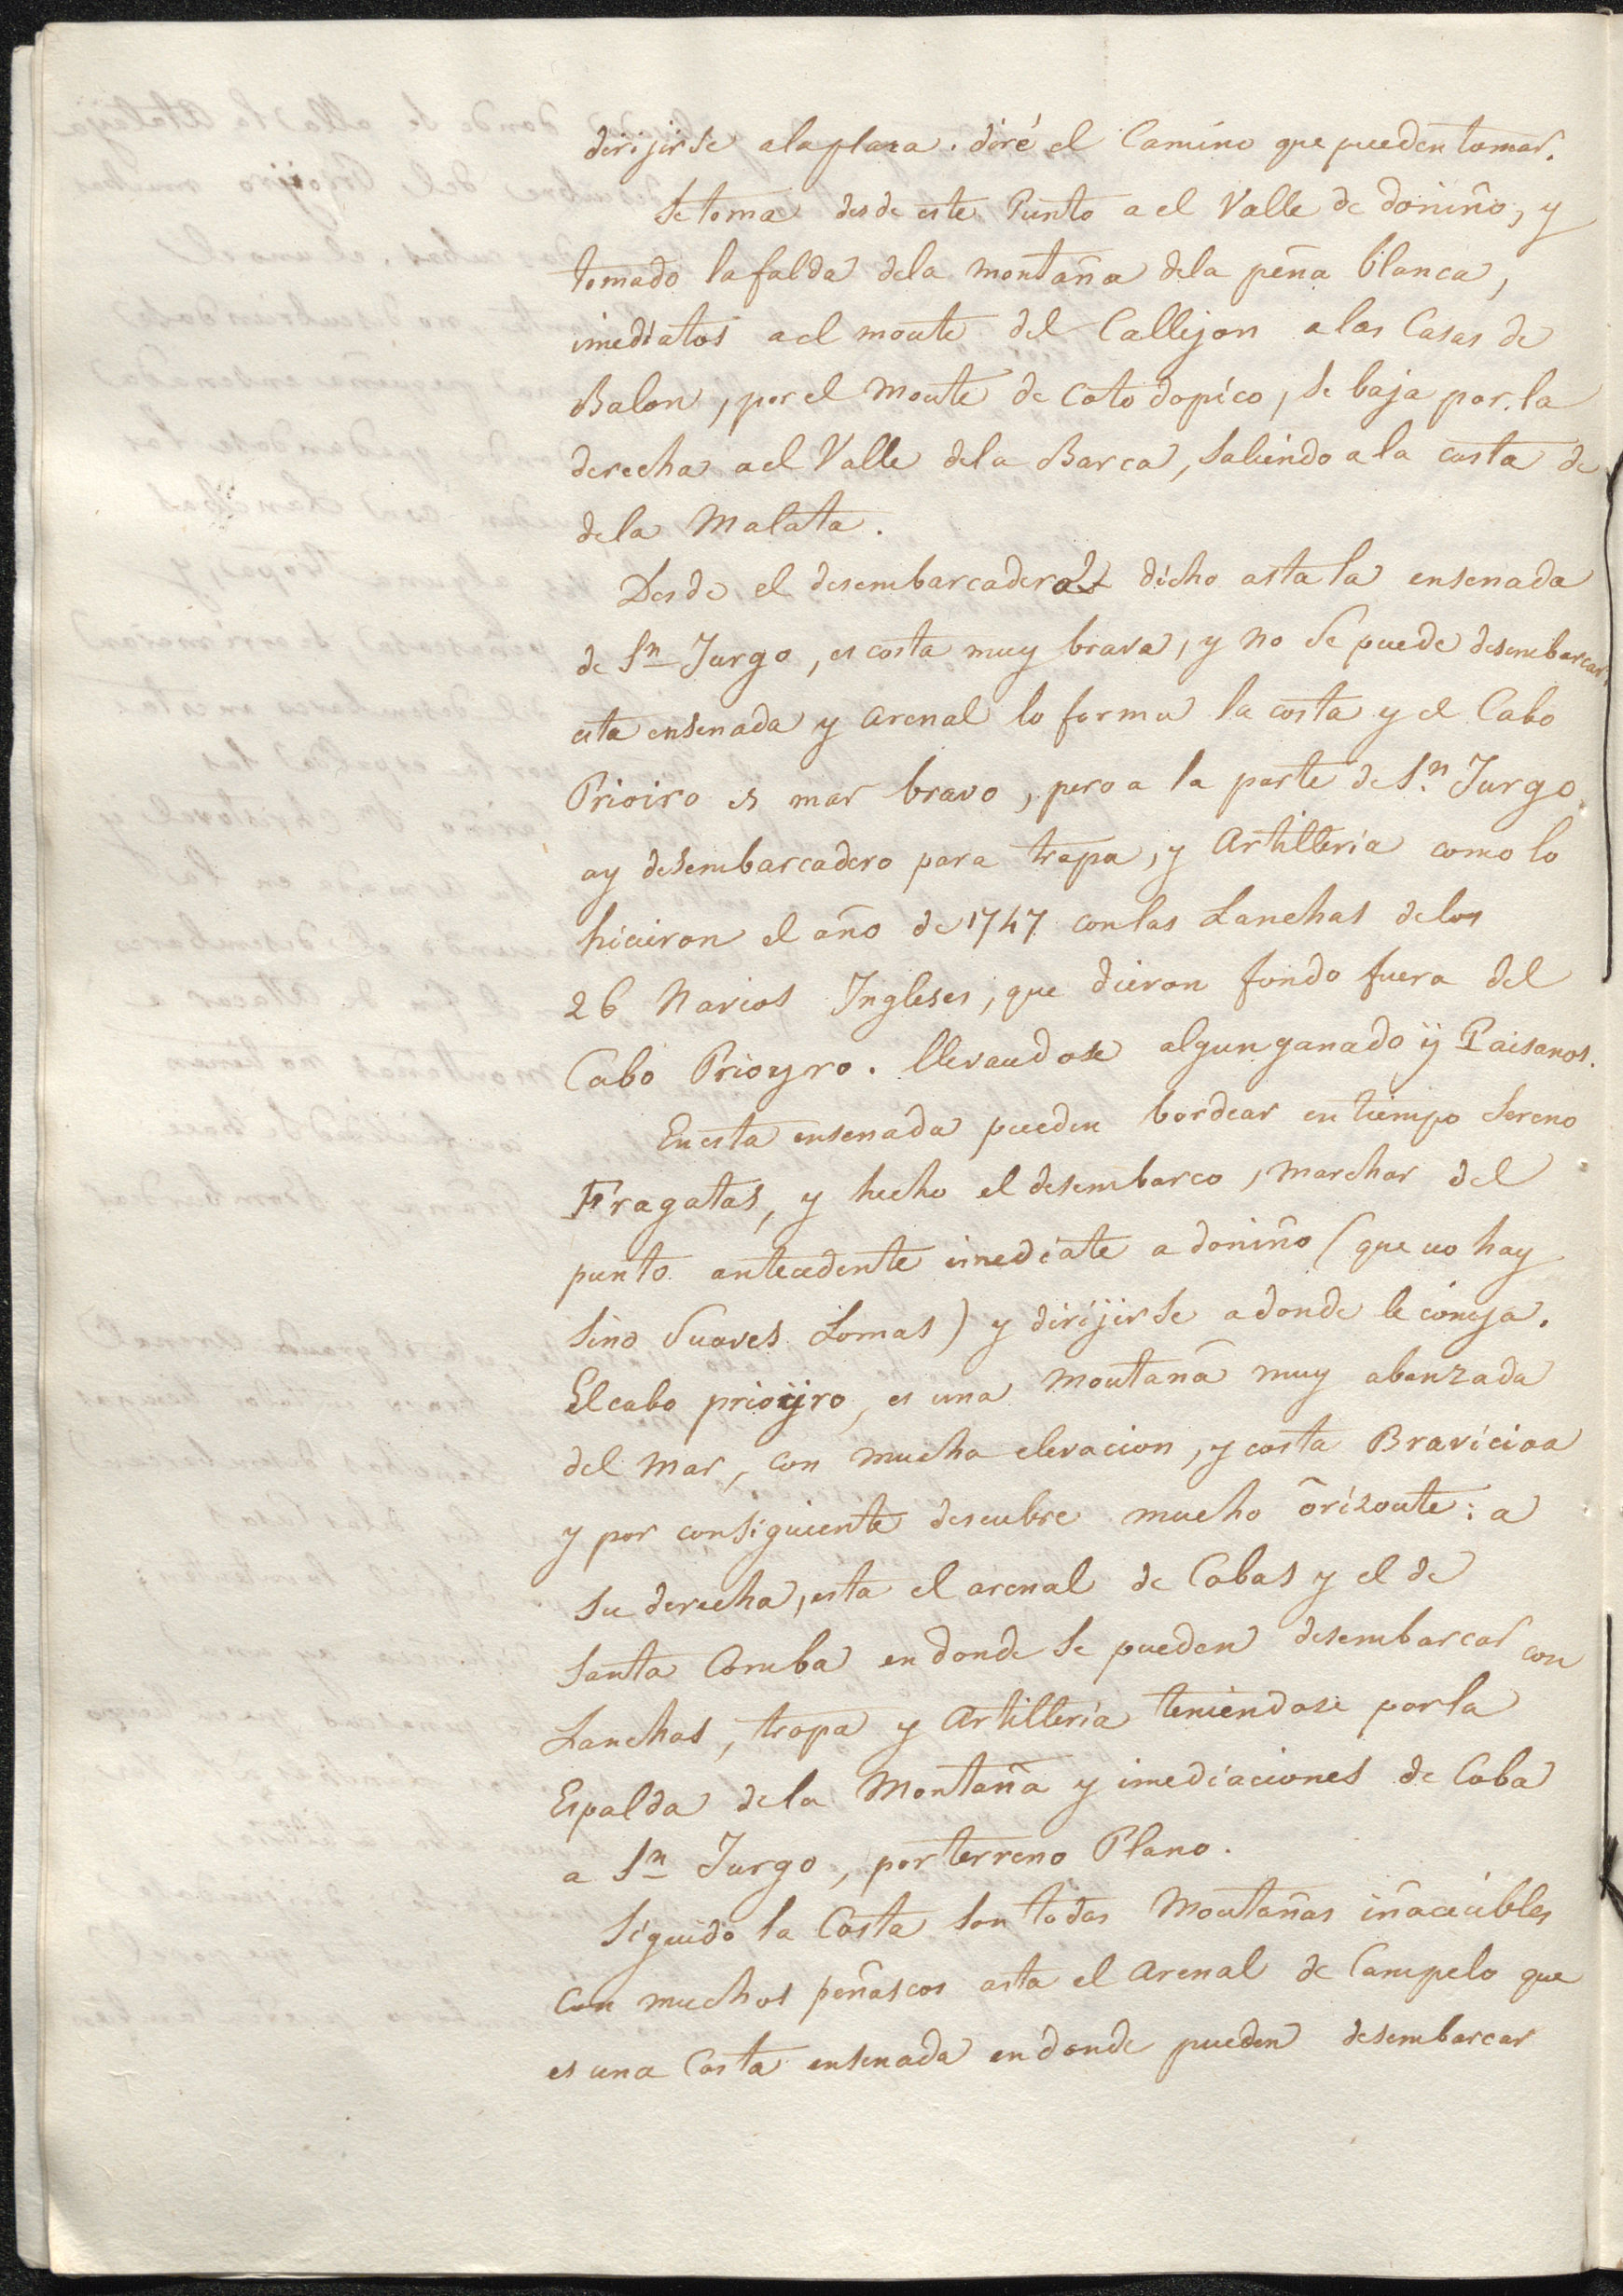 dirijirse alaplaza. diré el Camino que pueden tomar.
Se toma desde este Punto a el Valle de doniño, y
tomado la falda dela montaña dela peña blanca,
imediatos a el monte del Callejon a las Casas de
Balon, por el Monte de Coto dopico, se baja por la
derecha a el Valle dela Barca, saliendo a la costa de
dela Malata.
Desde el desembarcadero dicho asta la ensenada
de Sn Jurgo, es costa muy brava, y no se puede desembarcar,
esta ensenada y arenal lo forma la costa y el Cabo
Prioiro es mar bravo, pero a la parte de S.n Jurgo
ay desembarcadero para tropa, y Artilleria como lo
hicieron el año de 1747 con las Lanchas delos
26 Navios Ingleses, que dieron fondo fuera del
Cabo Prioyro. llevandose algun ganado ÿ Paisanos.
En esta ensenada pueden bordear en tiempo sereno
Fragatas, y hecho el desembarco, marchar del
punto antecedente imediate a doniño (que no hay
sino suaves Lomas) y dirijirse adonde le conbja.
El cabo prioÿro, es una Montaña muy abanzada
del mar, con mucha elevacion, y costa Braviciaa
y por consiguiente descubre mucho orizonte: a
su derecha, esta el arenal de Cobas y el de
Santa Comba en donde se pueden desembarcar con
Lanchas, tropa y Artilleria teniendose por la
Espalda dela Montaña y imediaciones de Coba
a Sn Jurgo, por terreno Plano.
Siguido la Costa son todas Montañas iñacecibles
con muchos peñascos asta el Arenal de Campelo que
es una Costa ensenada en donde pueden desembarcar